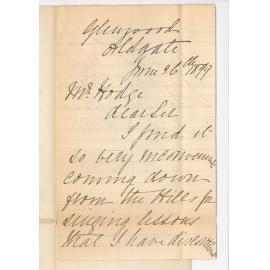 Glenwood
Aldgate
June 26th 1899
Mr. Hodge
dear Sir
I find it
so very inconvenient
coming down
from the Hills for
singing lessons
that I have